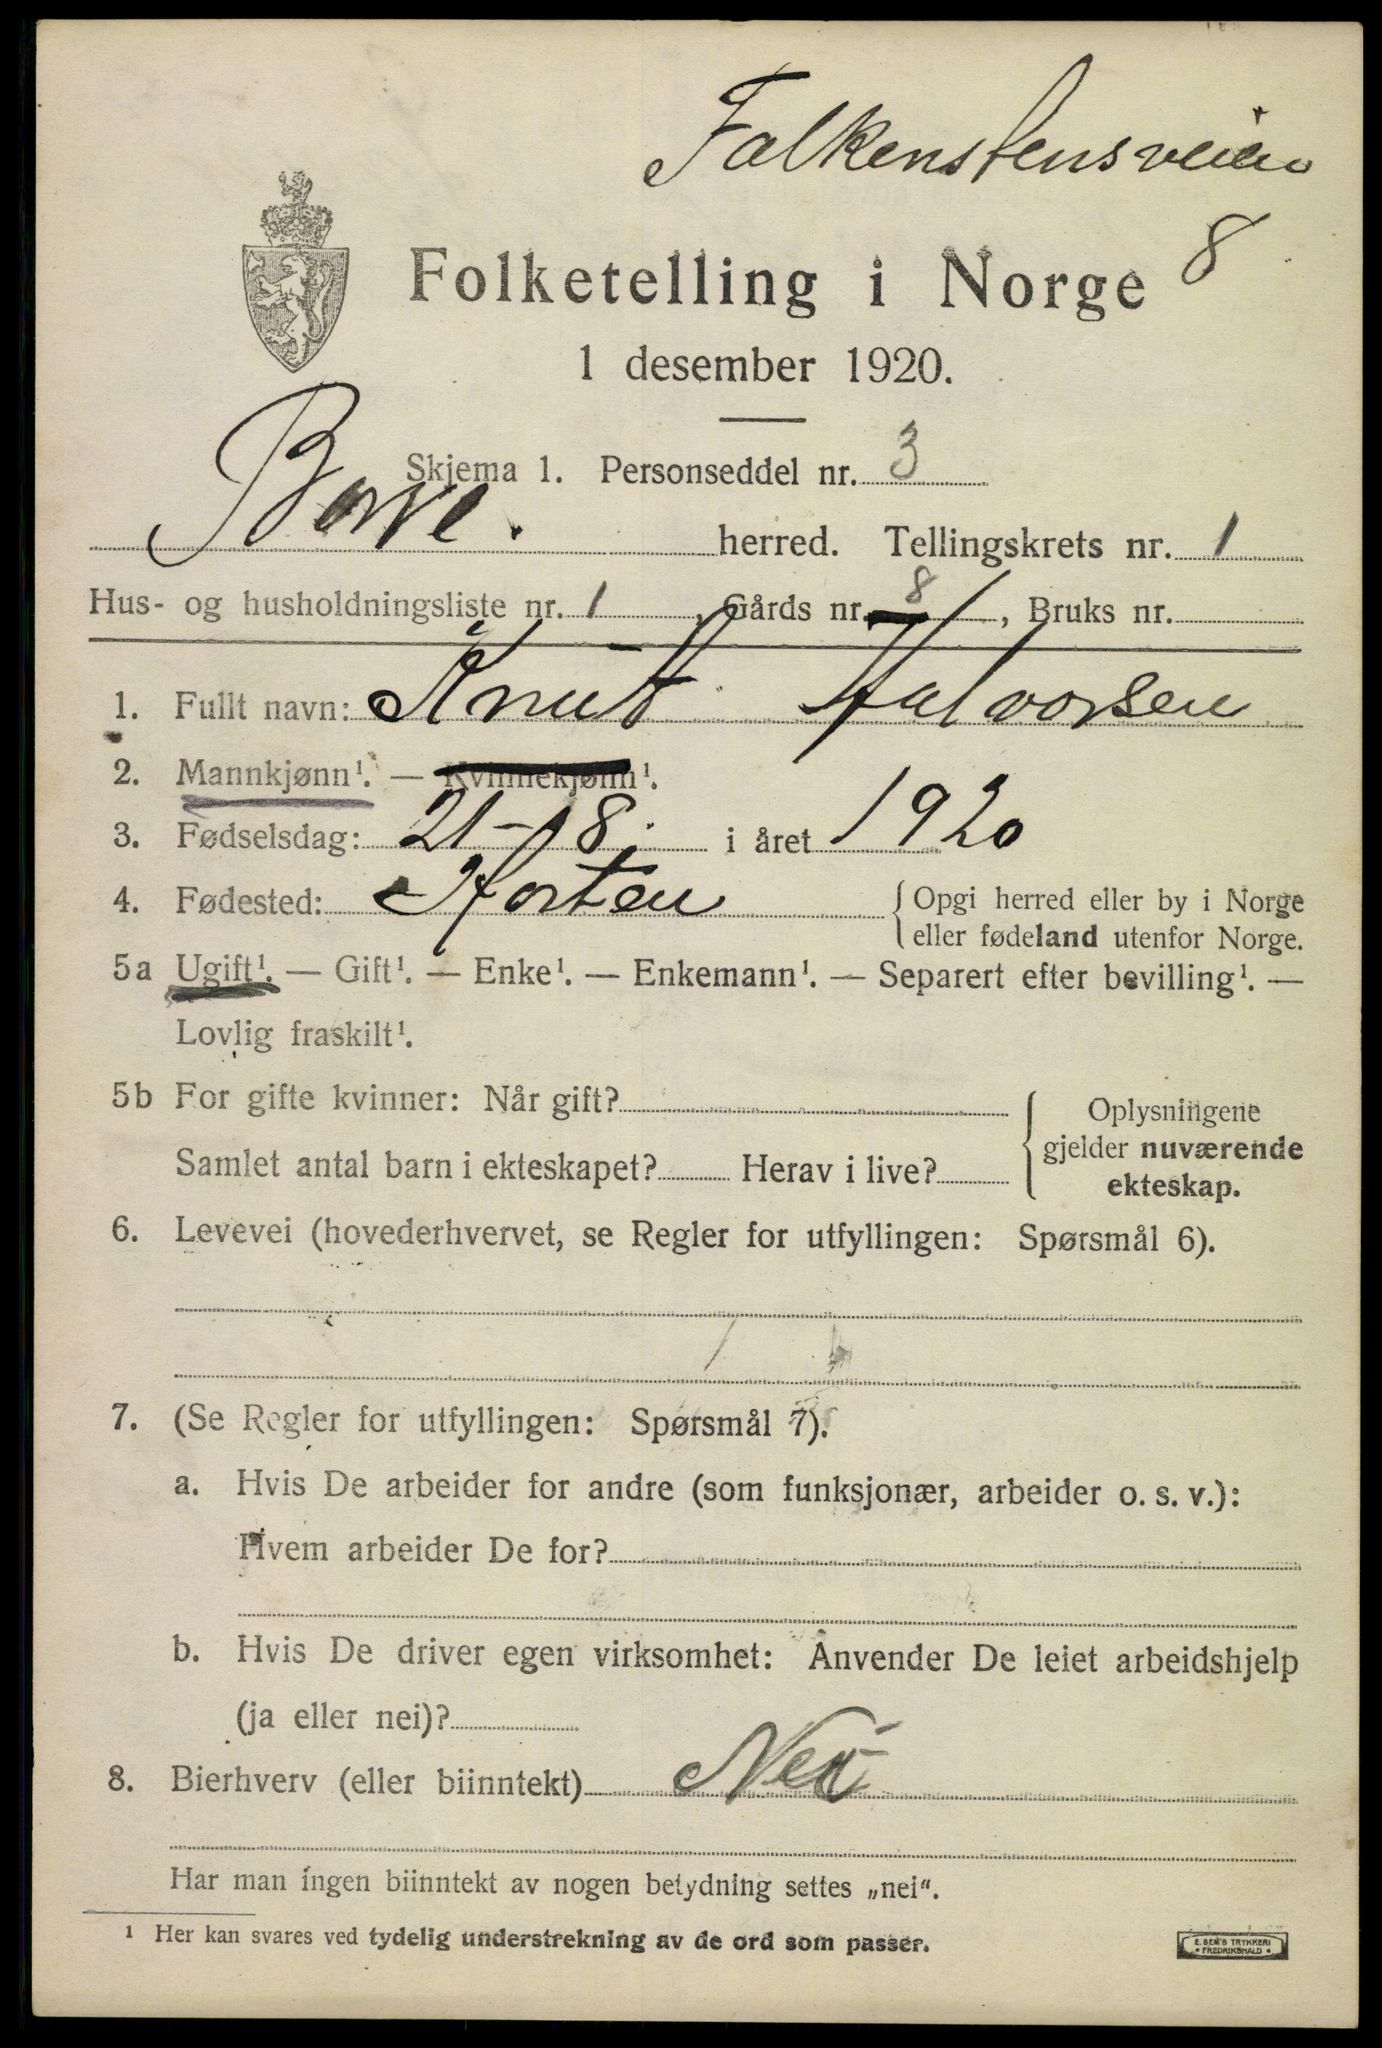 Falkenstensveien
8
Folketelling i Norge
1 desember 1920.
Skjema 1. Personseddel nr. 3
Borre. herred. Tellingskrets nr. 1
Hus- og husholdningsliste nr. 1, Gårds nr. 8, Bruks nr.
1. Fullt navn: Knut Halvorsen
2. Mannkjønn¹. — Kvinnekjønn¹.
3. Fødselsdag: 21-8. i året 1920
4. Fødested: Horten { Opgi herred eller by i Norge
eller fødeland utenfor Norge.
5a Ugift¹. — Gift¹. — Enke¹. — Enkemann¹. — Separert efter bevilling¹. —
Lovlig fraskilt¹.
5b For gifte kvinner: Når gift? { Oplysningene
Samlet antal barn i ekteskapet? Herav i live? gjelder nuværende
ekteskap.
6. Levevei (hovederhvervet, se Regler for utfyllingen: Spørsmål 6).
7. (Se Regler for utfyllingen: Spørsmål 7).
a. Hvis De arbeider for andre (som funksjonær, arbeider o. s. v.):
Hvem arbeider De for?
b. Hvis De driver egen virksomhet: Anvender De leiet arbeidshjelp
(ja eller nei)?
8. Bierhverv (eller biinntekt) Nei
Har man ingen biinntekt av nogen betydning settes „nei“.
¹ Her kan svares ved tydelig understrekning av de ord som passer.
E. SEM'S TRYKKERI
FREDRIKSHALD